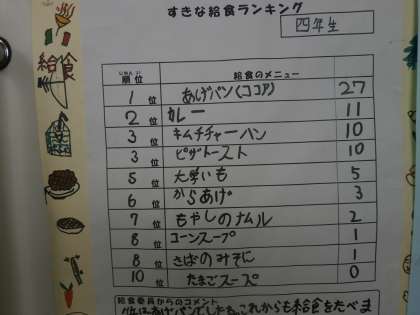 すきな給食ランキング
四年生
給食
順位 給食のメニュー
1位 あげパン(ココア) 27
2位 カレー 11
3位 キムチチャーハン 10
3位 ピザトースト 10
5位 大学いも 5
6位 からあげ 3
7位 もやしのナムル 2
8位 コーンスープ 1
8位 さばのみそに 1
10位 たまごスープ 0
給食委員からのコメント
1位はあげパンでした。これからも給食をたべま